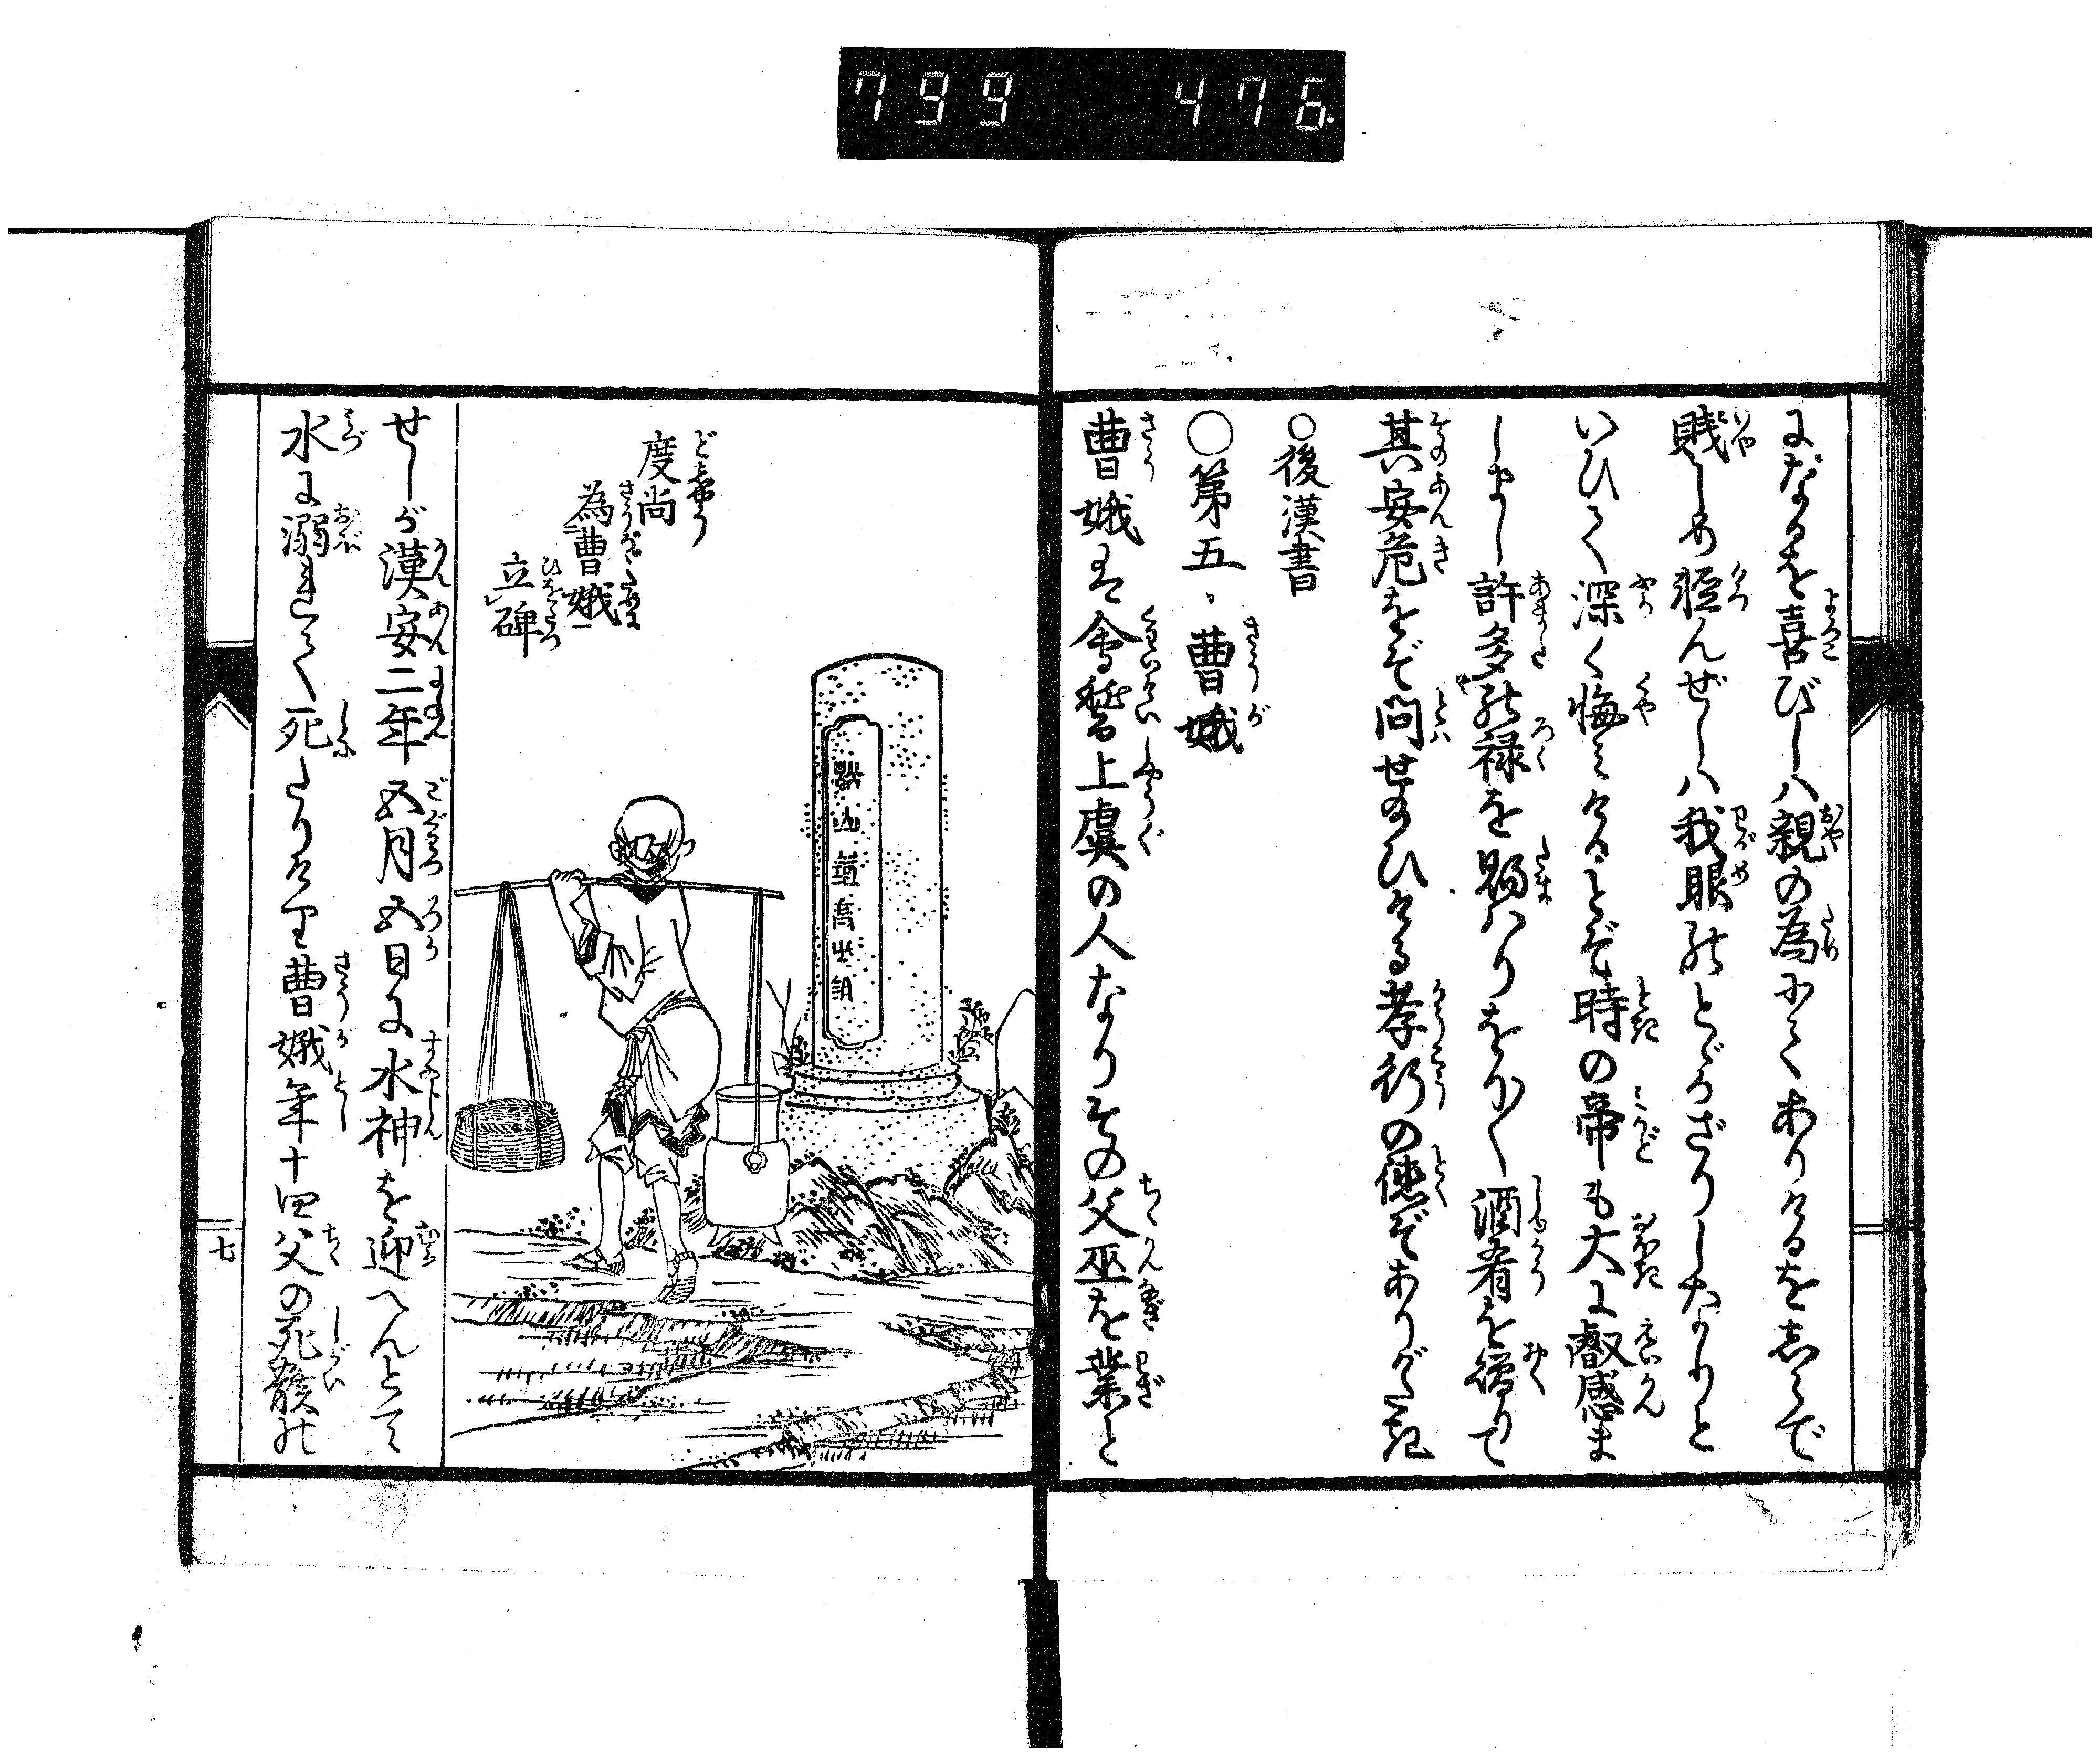 799 476.
になるを喜びしハ親の為にてありけるを志らで
賎しめ軽んぜしハ我眼のとゞかざりしなりと
いひて深く悔ミけるとぞ時の帝も大に叡感ま
しまし許多の禄を賜ハりをかく酒肴を贈りて
其安危をぞ問せ給ひける孝行の徳ぞありがたき
○後漢書
○第五、曹娥
曹娥は會稽上虞の人なりその父巫を業と
度尚
為曹娥
立碑
せしが漢安二年五月五日に水神を迎へんとて
水に溺れて死たりけり曹娥年十四父の死骸の
七